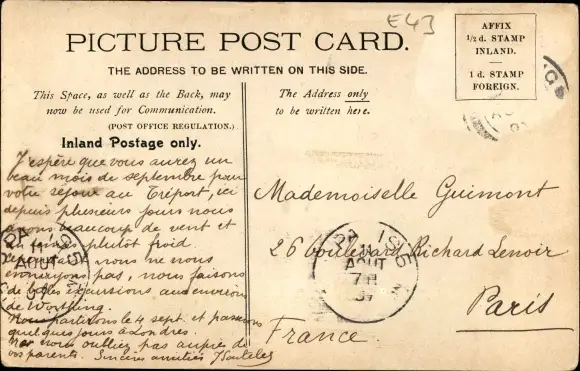 E43
PICTURE POST CARD.
THE ADDRESS TO BE WRITTEN ON THIS SIDE.
AFFIX
1/2 d. STAMP
INLAND.
1 d. STAMP
FOREIGN.
This Space, as well as the Back, may
now be used for Communication.
(POST OFFICE REGULATION.)
Inland Postage only.
The Address only
to be written here.
J'espère que vous aurez un
beau mois de septembre pour
votre séjour au Tréport, ici
depuis plusieurs jours nous
avons beaucoup de vent et
plutôt froid.
nous ne nous
ennuyons pas, nous faisons
de belles excursions aux environs
de Worthing.
Nous partirons le 4 sept. et passerons
quelques jours à Londres.
nous oubliez pas auprès de
vos parents. Sincères amitiés
Mademoiselle Guimont
26 boulevard Richard Lenoir
Paris
France
AOUT
AOUT